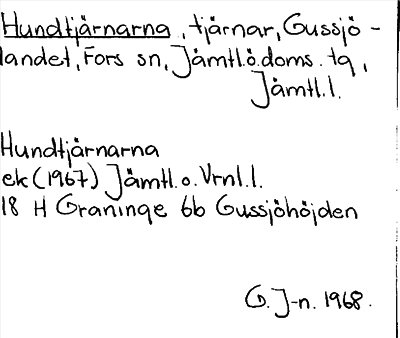 Hundtjärnarna, tjärnar, Gussjö-
landet, Fors sn, Jämtl.ö.doms. tg,
Jämtl.l.
Hundtjärnarna
ek (1967) Jämtl. o. Vrnl.l.
18 H Graninge 6b Gussjöhöjden
G. J-n. 1968.